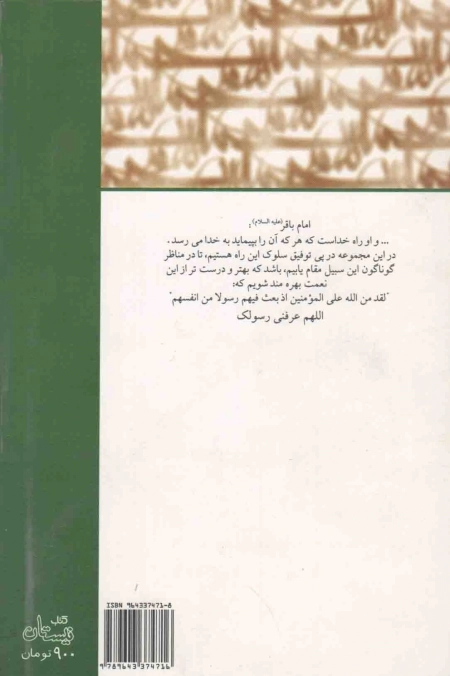 امام باقر (علیه السلام):
... و او راه خداست که هر که آن را بپیماید به خدا می رسد.
در این مجموعه در پی توفیق سلوک این راه هستیم، تا در مناظر
گوناگون این سبیل مقام یابیم، باشد که بهتر و درست تر از این
نعمت بهره مند شویم که:
"لقد من الله علی المؤمنین اذ بعث فیهم رسولا من انفسهم"
اللهم عرفنی رسولک
کتاب
نیستان
۹۰۰ تومان
ISBN 964337471-8
9 789643 374716